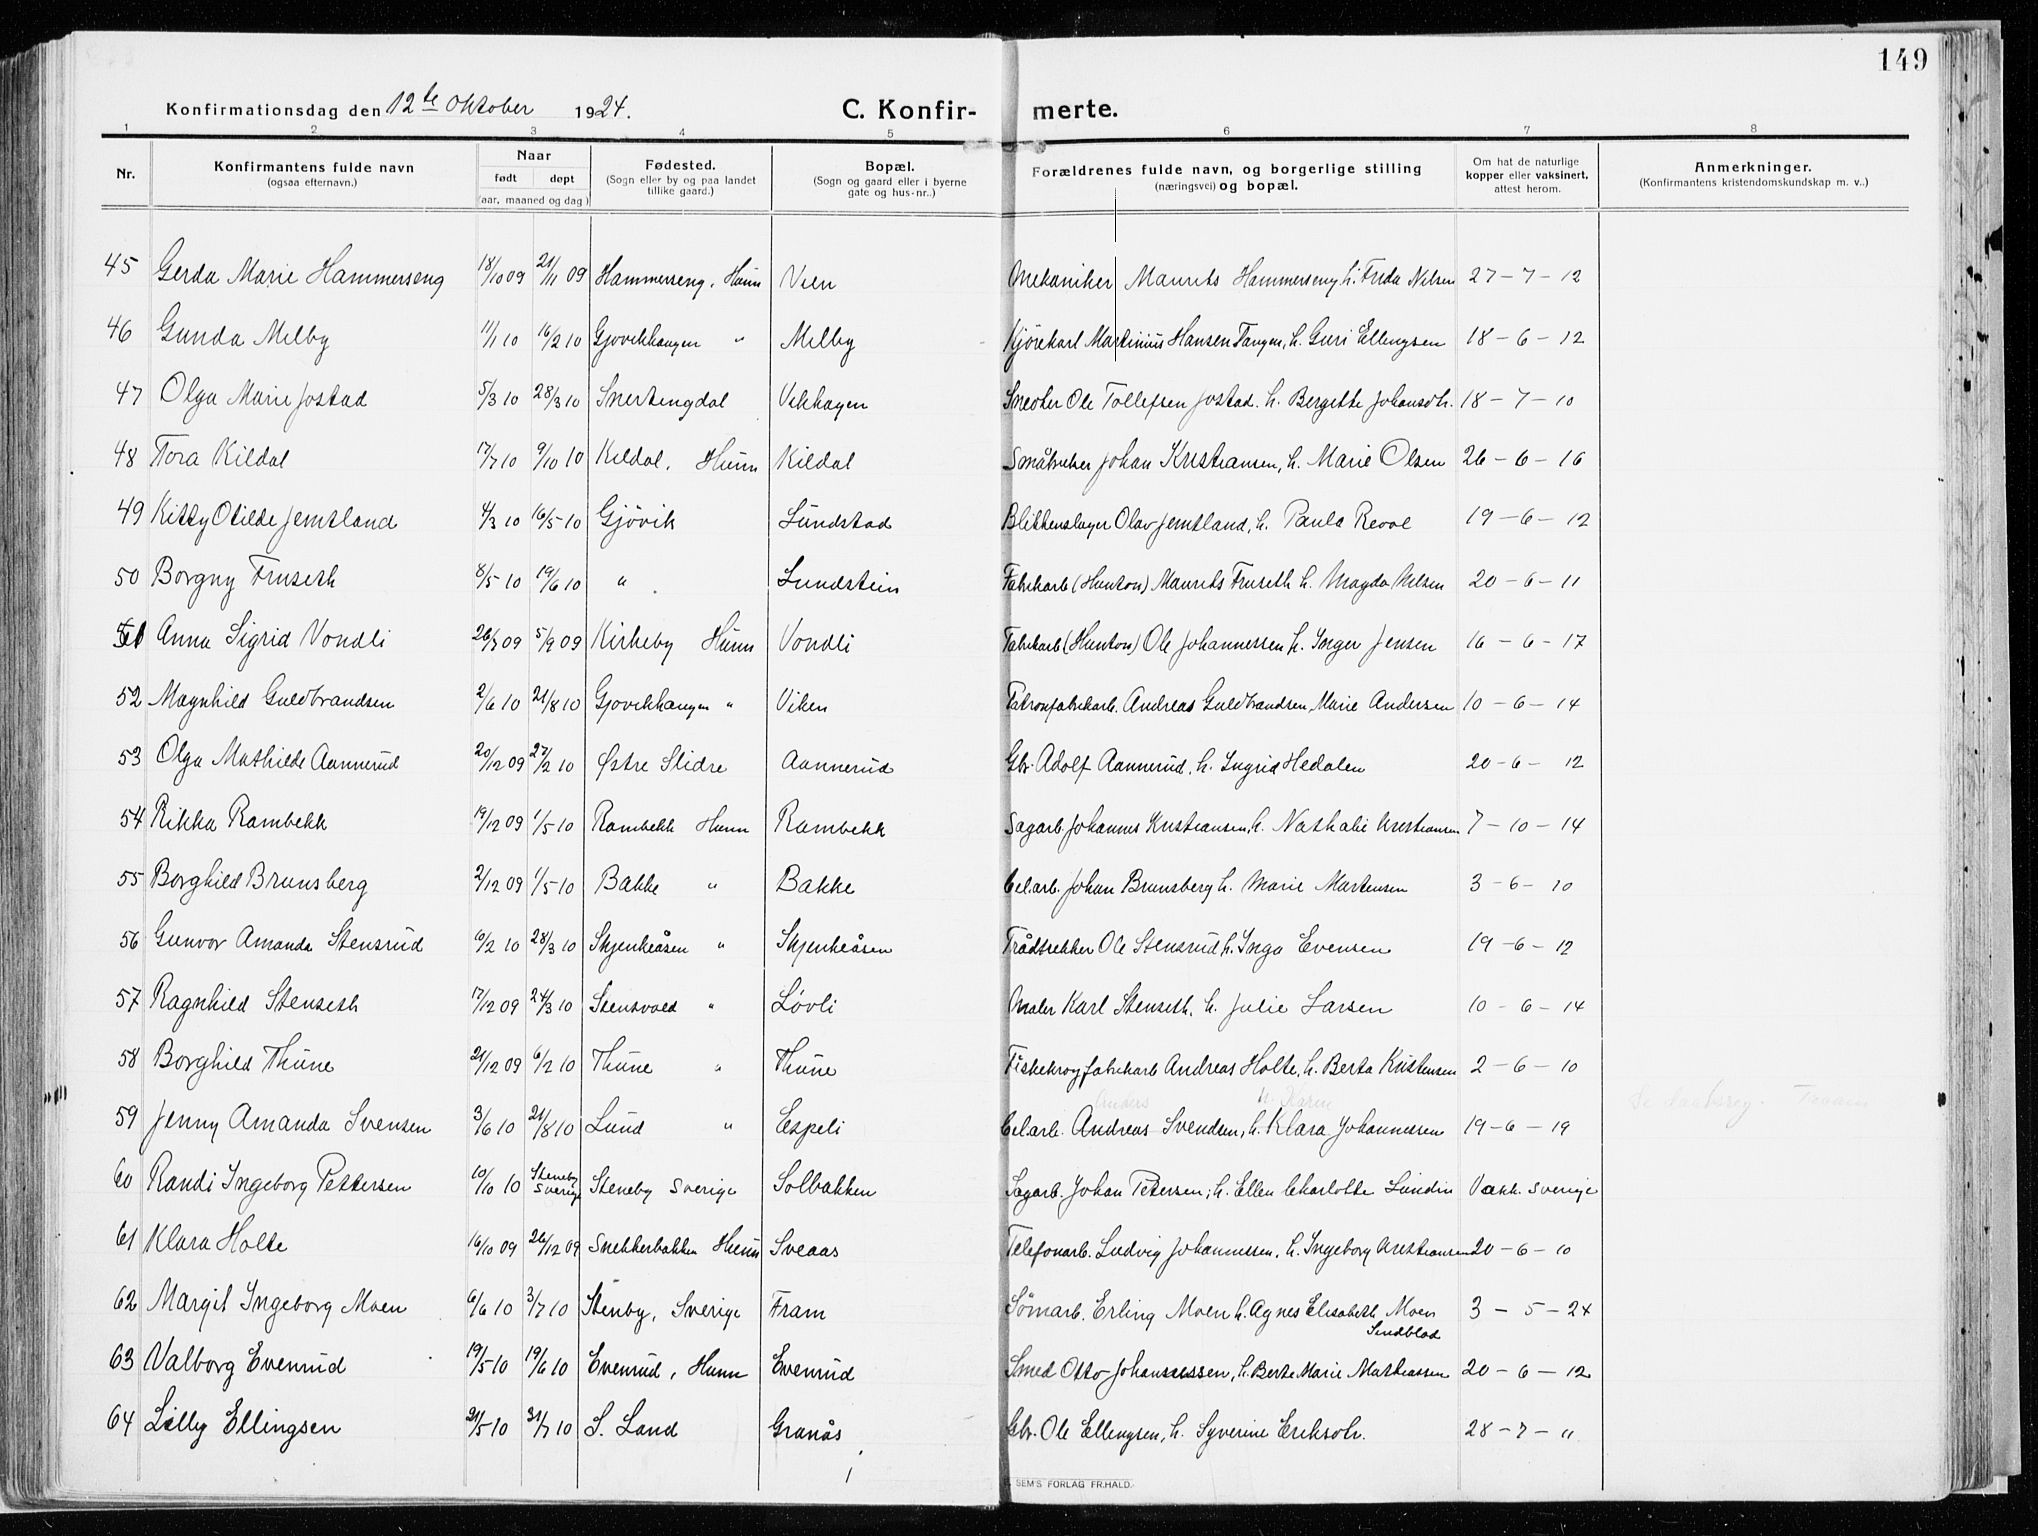 149
Konfirmationsdag den 12te Oktober 1924.
C. Konfir- merte.
1 2 3 4 5 6 7 8
Nr. Konfirmantens fulde navn Naar Fødested. Bopæl. Forældrenes fulde navn, og borgerlige stilling Om hat de naturlige Anmerkninger.
(ogsaa efternavn.) født døpt (Sogn eller by og paa landet (Sogn og gaard eller i byerne (næringsvei) og bopæl. kopper eller vaksinert, (Konfirmantens kristendomskundskap m. v..)
(aar, maaned og dag) tillike gaard.) gate og hus-nr..) attest herom.
45 Gerda Marie Hammerseng 18/10 09 21/11 09 Hammerseng, Hunn Vien Mekaniker Maurits Hammerseng h. Frida Nilsen 27-7-12
46 Gunda Melby 11/1 10 16/2 10 Gjøvikhaugen " Melby Kjørekarl Martinius Hansen Tangen, h. Guri Ellingsen 18-6-12
47 Olga Marie Jostad 5/3 10 28/3 10 Snertingdal Vikhagen Snedker Ole Tollefsen Jostad. h. Bergitte Johansdtr. 18-7-10
48 Tora Kildal 17/7 10 9/10 10 Kildal, Hunn Kildal Småbruker Johan Kristiansen, h. Marie Olsen 26-6-16
49 Kitty Otilde Jemtland 4/3 10 16/5 10 Gjövik Lundstad Blikkenslager Olav Jemtland, h. Paula 19-6-12
50 Borgny Fruseth 8/5 10 19/6 10 " Lundstein Fabrikarb (Hunton) Maurits Fruseth h. Magda Nilsen 20-6-11
51 Anna Sigrid Vondli 26/7 09 5/9 09 Kirkeby Hunn Vondli Fabrikarb (Hunton) Ole Johannessen h. Inger Jensen 16-6-17
52 Magnhild Guldbrandsen 2/6 10 21/8 10 Gjovikhaugen " Viken Patronfabrikarb. Andreas Guldbrandsen, Marie Andersen 10-6-14
53 Olga Mathilde Aannerud 20/12 09 27/2 10 Østre Slidre Aannerud Gbr. Adolf Aannerud, h. Ingrid Hedalen 20-6-12
54 Rikka Rambekk 19/12 09 1/5 10 Rambekk Hunn Rambekk Sagarb. Johannes Kristiansen, h. Nathalie Kristiansen 7-10-14
55 Borghild Brunsberg 2/12 09 1/5 10 Bakke " Bakke Celarb. Johan Brunsberg h. Marie Martensen 3-6-10
56 Gunvor Amanda Stensrud 10/2 10 28/3 10 Skjenkeåsen " Skjenkeåsen Trådtrekker Ole Stensrud h. Inga Evensen 19-6-12
57 Ragnhild Stenseth 17/12 09 24/3 10 Stensvold " Lövli Maler Karl Stenseth, h. Julie Larsen 10-6-14
58 Borghild Thune 21/12 09 6/2 10 Thune " Thune Fiskekrogfabrikarb Andreas Holte, h. Berta Kristensen 2-6-10
Anders h. Karen
59 Jenny Amanda Svensen 3/6 10 21/8 10 Lund " Espeli Celarb. Andreas Svendsen, h. Klara Johannessen 19-6-19
60 Randi Ingeborg Pettersen 10/10 10 Steneby Sverige Steneby Sverige Solbakken Sagarb. Johan Petersen; h. Ellen Charlotte Lundin Vakk. Sverige
61 Klara Holte 16/10 09 26/12 09 Snekkerbakken Hunn Sveaas Telefonarb. Ludvig Johannessen, h. Ingeborg Kristiansen 20-6-10
62 Margit Ingeborg Moen 6/6 10 3/7 10 Stenby, Sverige Fram Sömarb. Erling Moen h. Agnes Elisabeth Moen 3-5-24
Sindblad
63 Valborg Evenrud 19/5 10 19/6 10 Evenrud, Hunn Evenrud Smed Otto Johannessen, h. Berte Marie Mathiassen 20-6-12
64 Lilly Ellingsen 21/5 10 31/7 10 S. Land Granås Gbr. Ole Ellingsen, h. Syverine Eriksdtr. 28-7-11
SEM'S FORLAG FR.HALD.